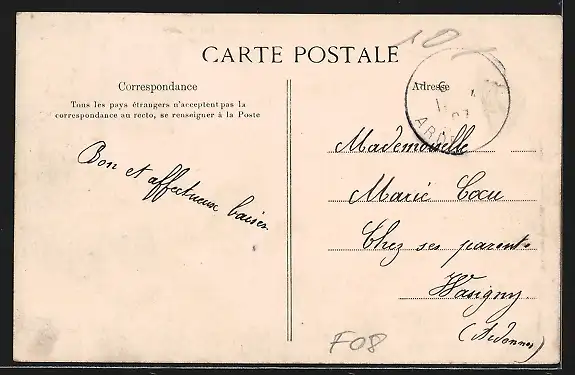 CARTE POSTALE
Correspondance
Tous les pays étrangers n'acceptent pas la
correspondance au recto, se renseigner à la Poste
Bon et affectueux baiser
Adresse
Mademoiselle
Marie Cocu
Chez ses parents
Wasigny
(Ardennes)
F08